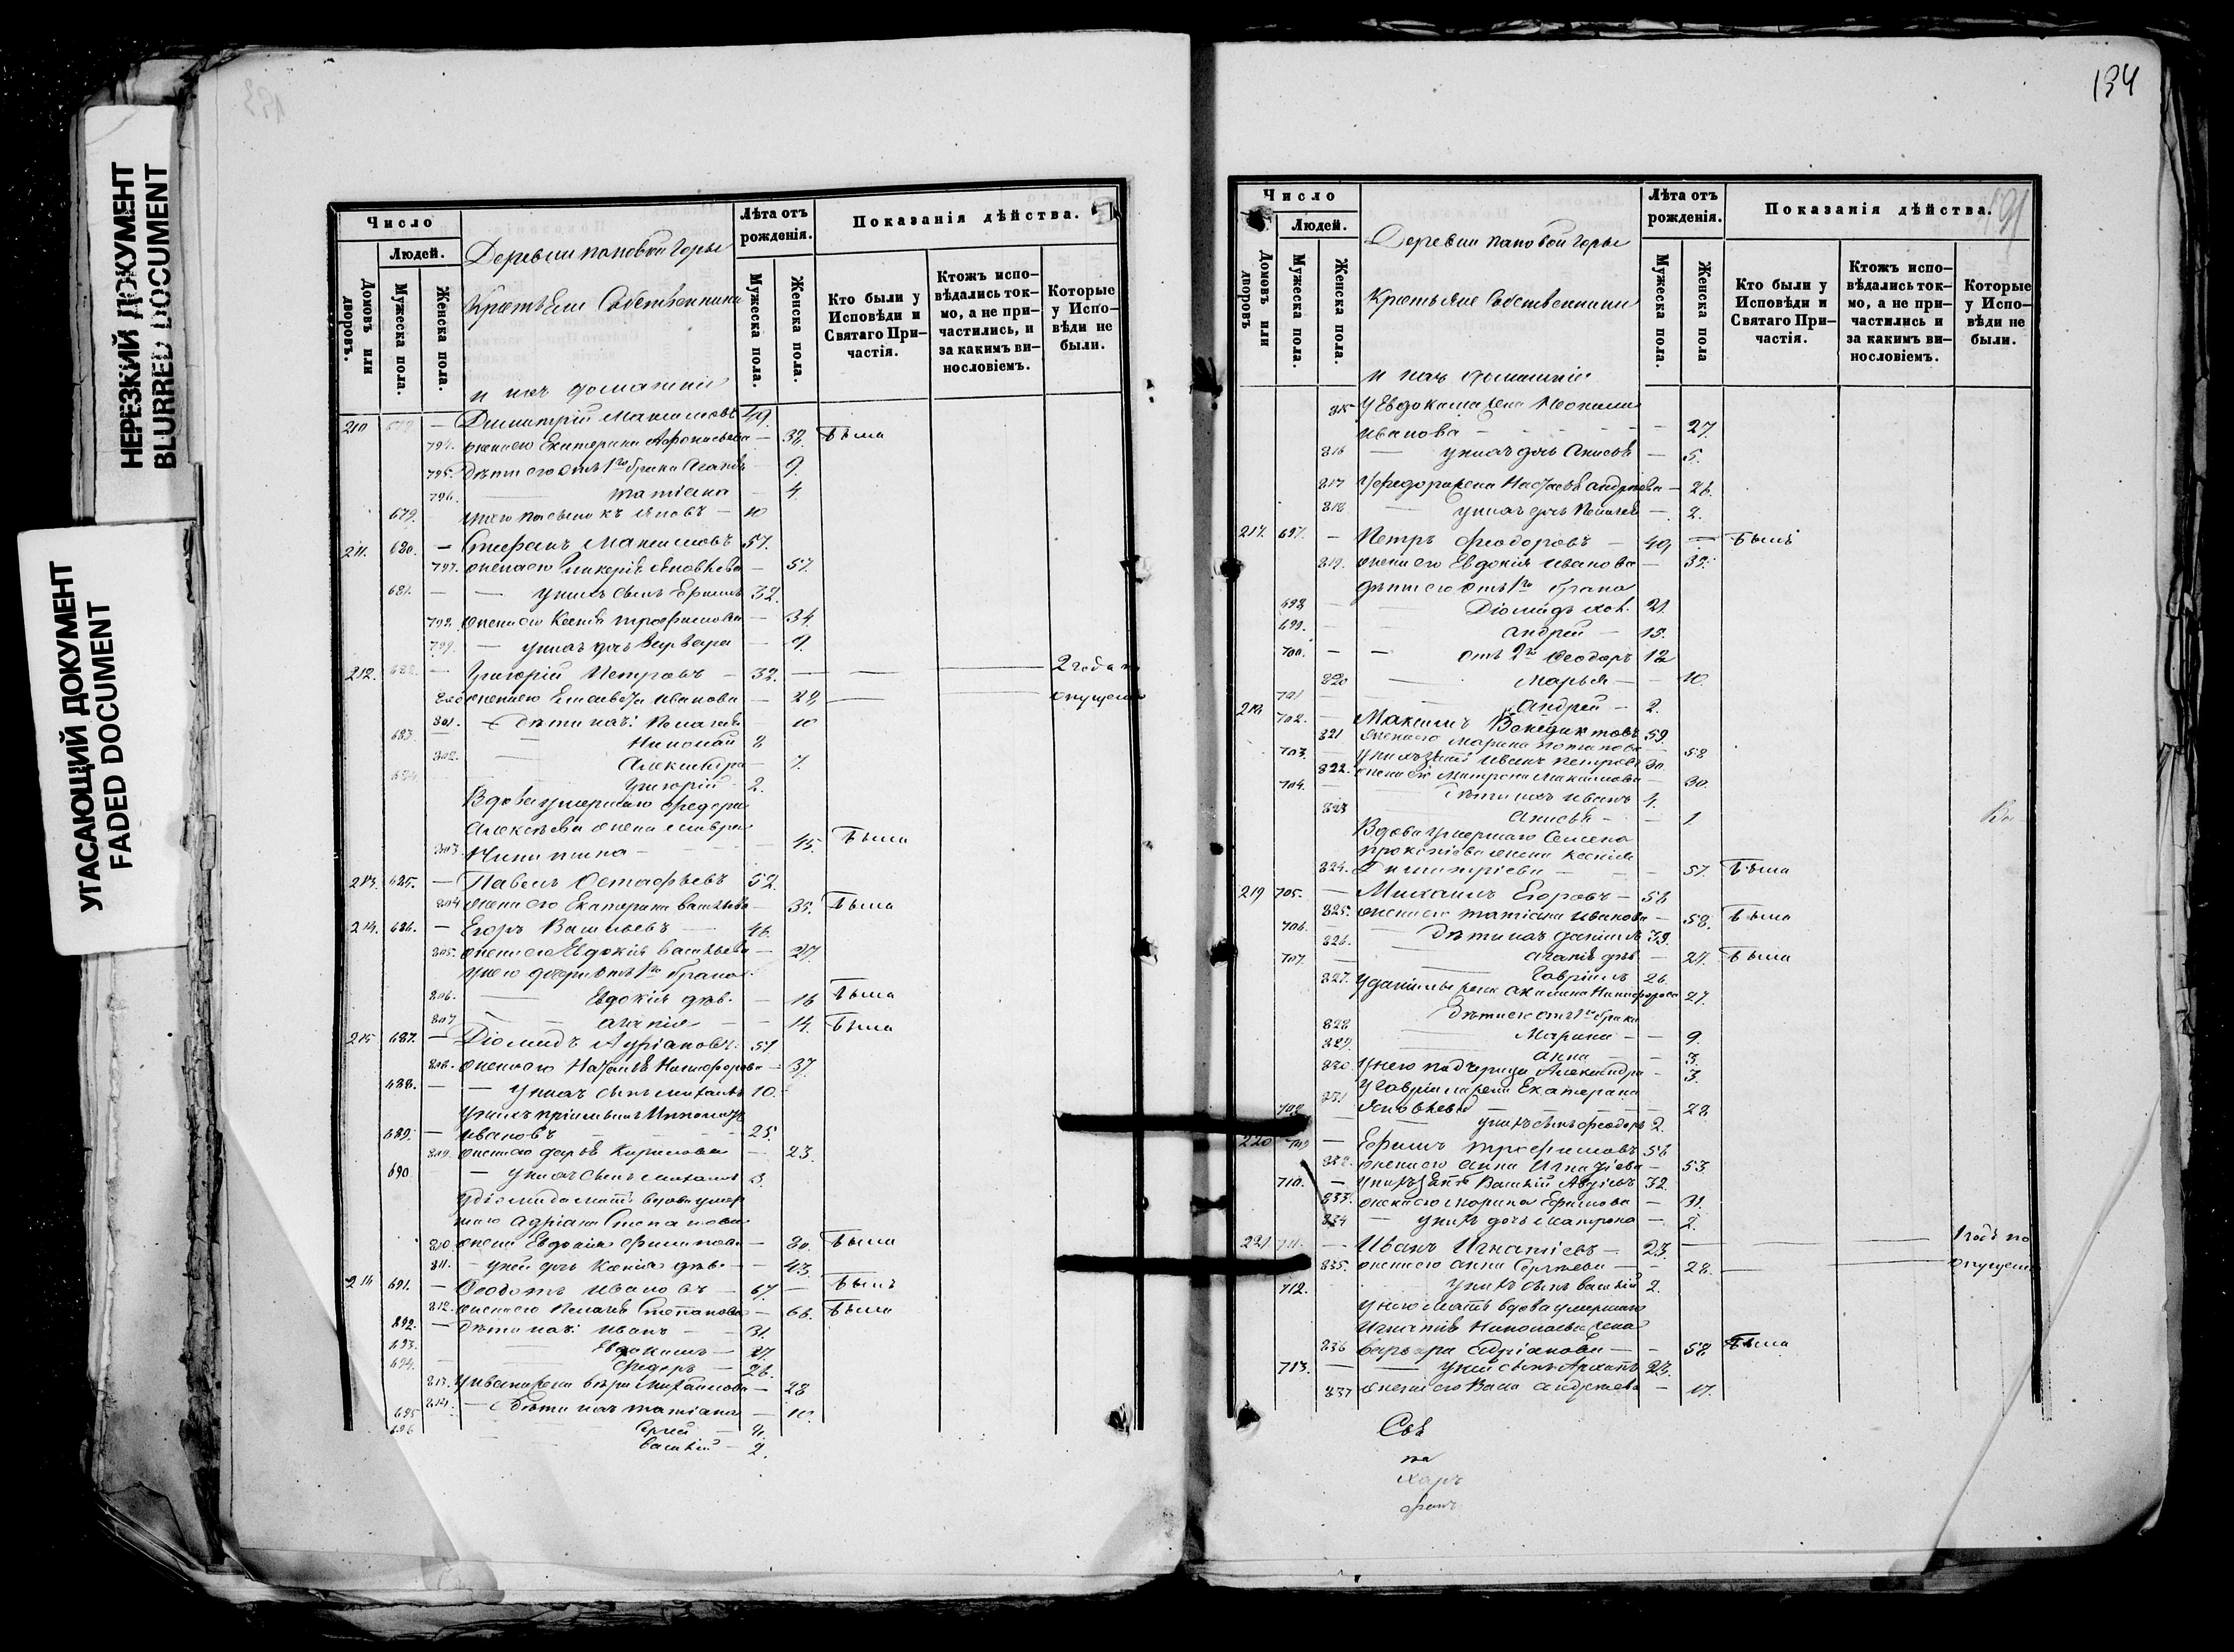 НЕРЕЗКИЙ ДОКУМЕНТ
BLURRED DOCUMENT
УГАСАЮЩИЙ ДОКУМЕНТ
FADED DOCUMENT
Число
Людей.
Домовъ или дворовъ.
Мужеска пола.
Женска пола.
Деревни поповой Горы
Крестьяне Собственники
и ихъ домашніе
Лѣта отъ рожденія.
Мужеска пола.
Женска пола.
Показанія дѣйства.
Кто были у Исповѣди и Святаго Причастія.
Ктожъ исповѣдались токмо, а не причастились, и за какимъ винословіемъ.
Которые у Исповѣди не были.
210 — Димитрій Максимовъ 49.
794. жена его Екатерина — 38. Была
795. Дѣти его отъ 1го брака — 9.
796. Татіана — 4
679. 10
211. 680. — Стефанъ Максимовъ 57.
797. жена его Гликерія — 57.
681. — — у нихъ сынъ Ефимъ 32.
798. жена его Ксенія Трофимова — 34.
799. — у нихъ дочь Варвара — 9.
212. — Григорій Петровъ — 32. — 2 года по
жена его Елисавета Иванова — 28, опущенію
801. — Дѣти ихъ: Пелагія — 10
683. Николай 8
802. Александра — 7.
Григорій 2.
Вдова умершаго Федора
Алексѣева жена Мавра
803. Никитина — 45. Была
213. 685. — Павелъ Остафьевъ 52.
804 жена его Екатерина Васильева — 35. Была
214. 686. — Егоръ Васильевъ — 46.
805. жена его Евдокія Васильева — 27.
У него дочери отъ 1го брака
806. Евдокія дѣв. — 16 Была
807 Агапія — 14. Была
215 687. — Діомидъ Адріановъ. 51
808. жена его Наталія Никифорова — 37.
688. — — у нихъ сынъ Михаилъ 10.
У нихъ пріемышъ Никаноръ
689. — Ивановъ 25.
809. жена его Дарья Кирилова — 23.
690 — у нихъ сынъ Михаилъ 3.
У Діомида мать вдова умер
шаго Адріана Степанова
810 жена Евдокія Филипова — 80. Была
811. — у ней дочь Ксенія дѣв. — 43.
216 691. — Ѳеодотъ Ивановъ — 67 — Былъ
812. жена его Пелагія Степанова — 66. Была
692. — Дѣти ихъ: Иванъ — 31.
693. Евдокимъ — 27.
694. Федоръ — 26.
813. У Ивана жена Вѣра Михайлова — 28
814. — Дѣти ихъ Татіана — 10.
695 Сергій — 4.
696 Василій — 2.
134
Число
Людей.
Домовъ или дворовъ
Мужеска пола.
Женска пола.
Деревни поповой Горы
Крестьяне Собственники
и ихъ домашніе
Лѣта отъ рожденія.
Мужеска пола.
Женска пола
Показанія дѣйства.
Кто были у Исповѣди и Святаго Причастія.
Ктожъ исповѣдались токмо, а не причастились и за какимъ винословіемъ.
Которые у Исповѣди не были.
815 У Евдокима жена
Иванова — 27.
816 — у нихъ дочь Анисья — 5.
817 У Федора жена Настасья Андреева — 26.
818 у нихъ дочь Пелагея — 2.
217. 697. — Петръ Ѳеодоровъ — 49, — Былъ
819. жена его Евдокія Иванова — 35.
Дѣти его отъ 1го брака
698 — Діомидъ хол. 21.
699. — Андрей — 15.
700. — — отъ 2го Ѳеодоръ 12
820 Марья — 10.
701 Андрей — 2.
218 702. — Максимъ Венедиктовъ 59.
821 жена его Марина Потапова — 58
703. у нихъ зять Иванъ Петровъ 30
822. жена его Матрона Максимова — 30.
704. — Дѣти ихъ Иванъ 4.
823 Анисья — 1
Вдова умершаго Семена
Прокопіева жена Ксенія
824. Димитріева — 57. Была
219 705. — Михаилъ Егоровъ — 58
825. жена его Татіана Иванова — 58. Была
706. — Дѣти ихъ Даніилъ 33.
826. Агапія дѣв. — 27. Была
707. — Гавріилъ 26.
827. У Даніила жена Акилина Никифорова 27.
Дѣти ея отъ 1го брака
828 Марина — 9.
829. Анна — 3.
830. У него падчерица Александра — 3.
У Гавріила жена Екатерина
831 Яковлева — 28
708 — у нихъ сынъ Ѳеодоръ 2.
220 709 — Ефимъ Трофимовъ 56
832. жена его Анна Игнатіева — 53.
710. — у нихъ зять Василій 32.
833. жена его Марина Ефимова — 31.
834 — у нихъ дочь Матрона — 2.
221 711. — Иванъ Игнатіевъ — 23. — 1 годъ по
835. жена его Анна Сергѣева — 28. — опущенію
712. у нихъ сынъ Василій 2.
У него мать вдова умершаго
Игнатія Николаева жена
836 Варвара Адріанова — 58 Была
713. — — у ней сынъ Архипъ 23.
837 жена его Андреева — 17.
Свя
на
Харъ